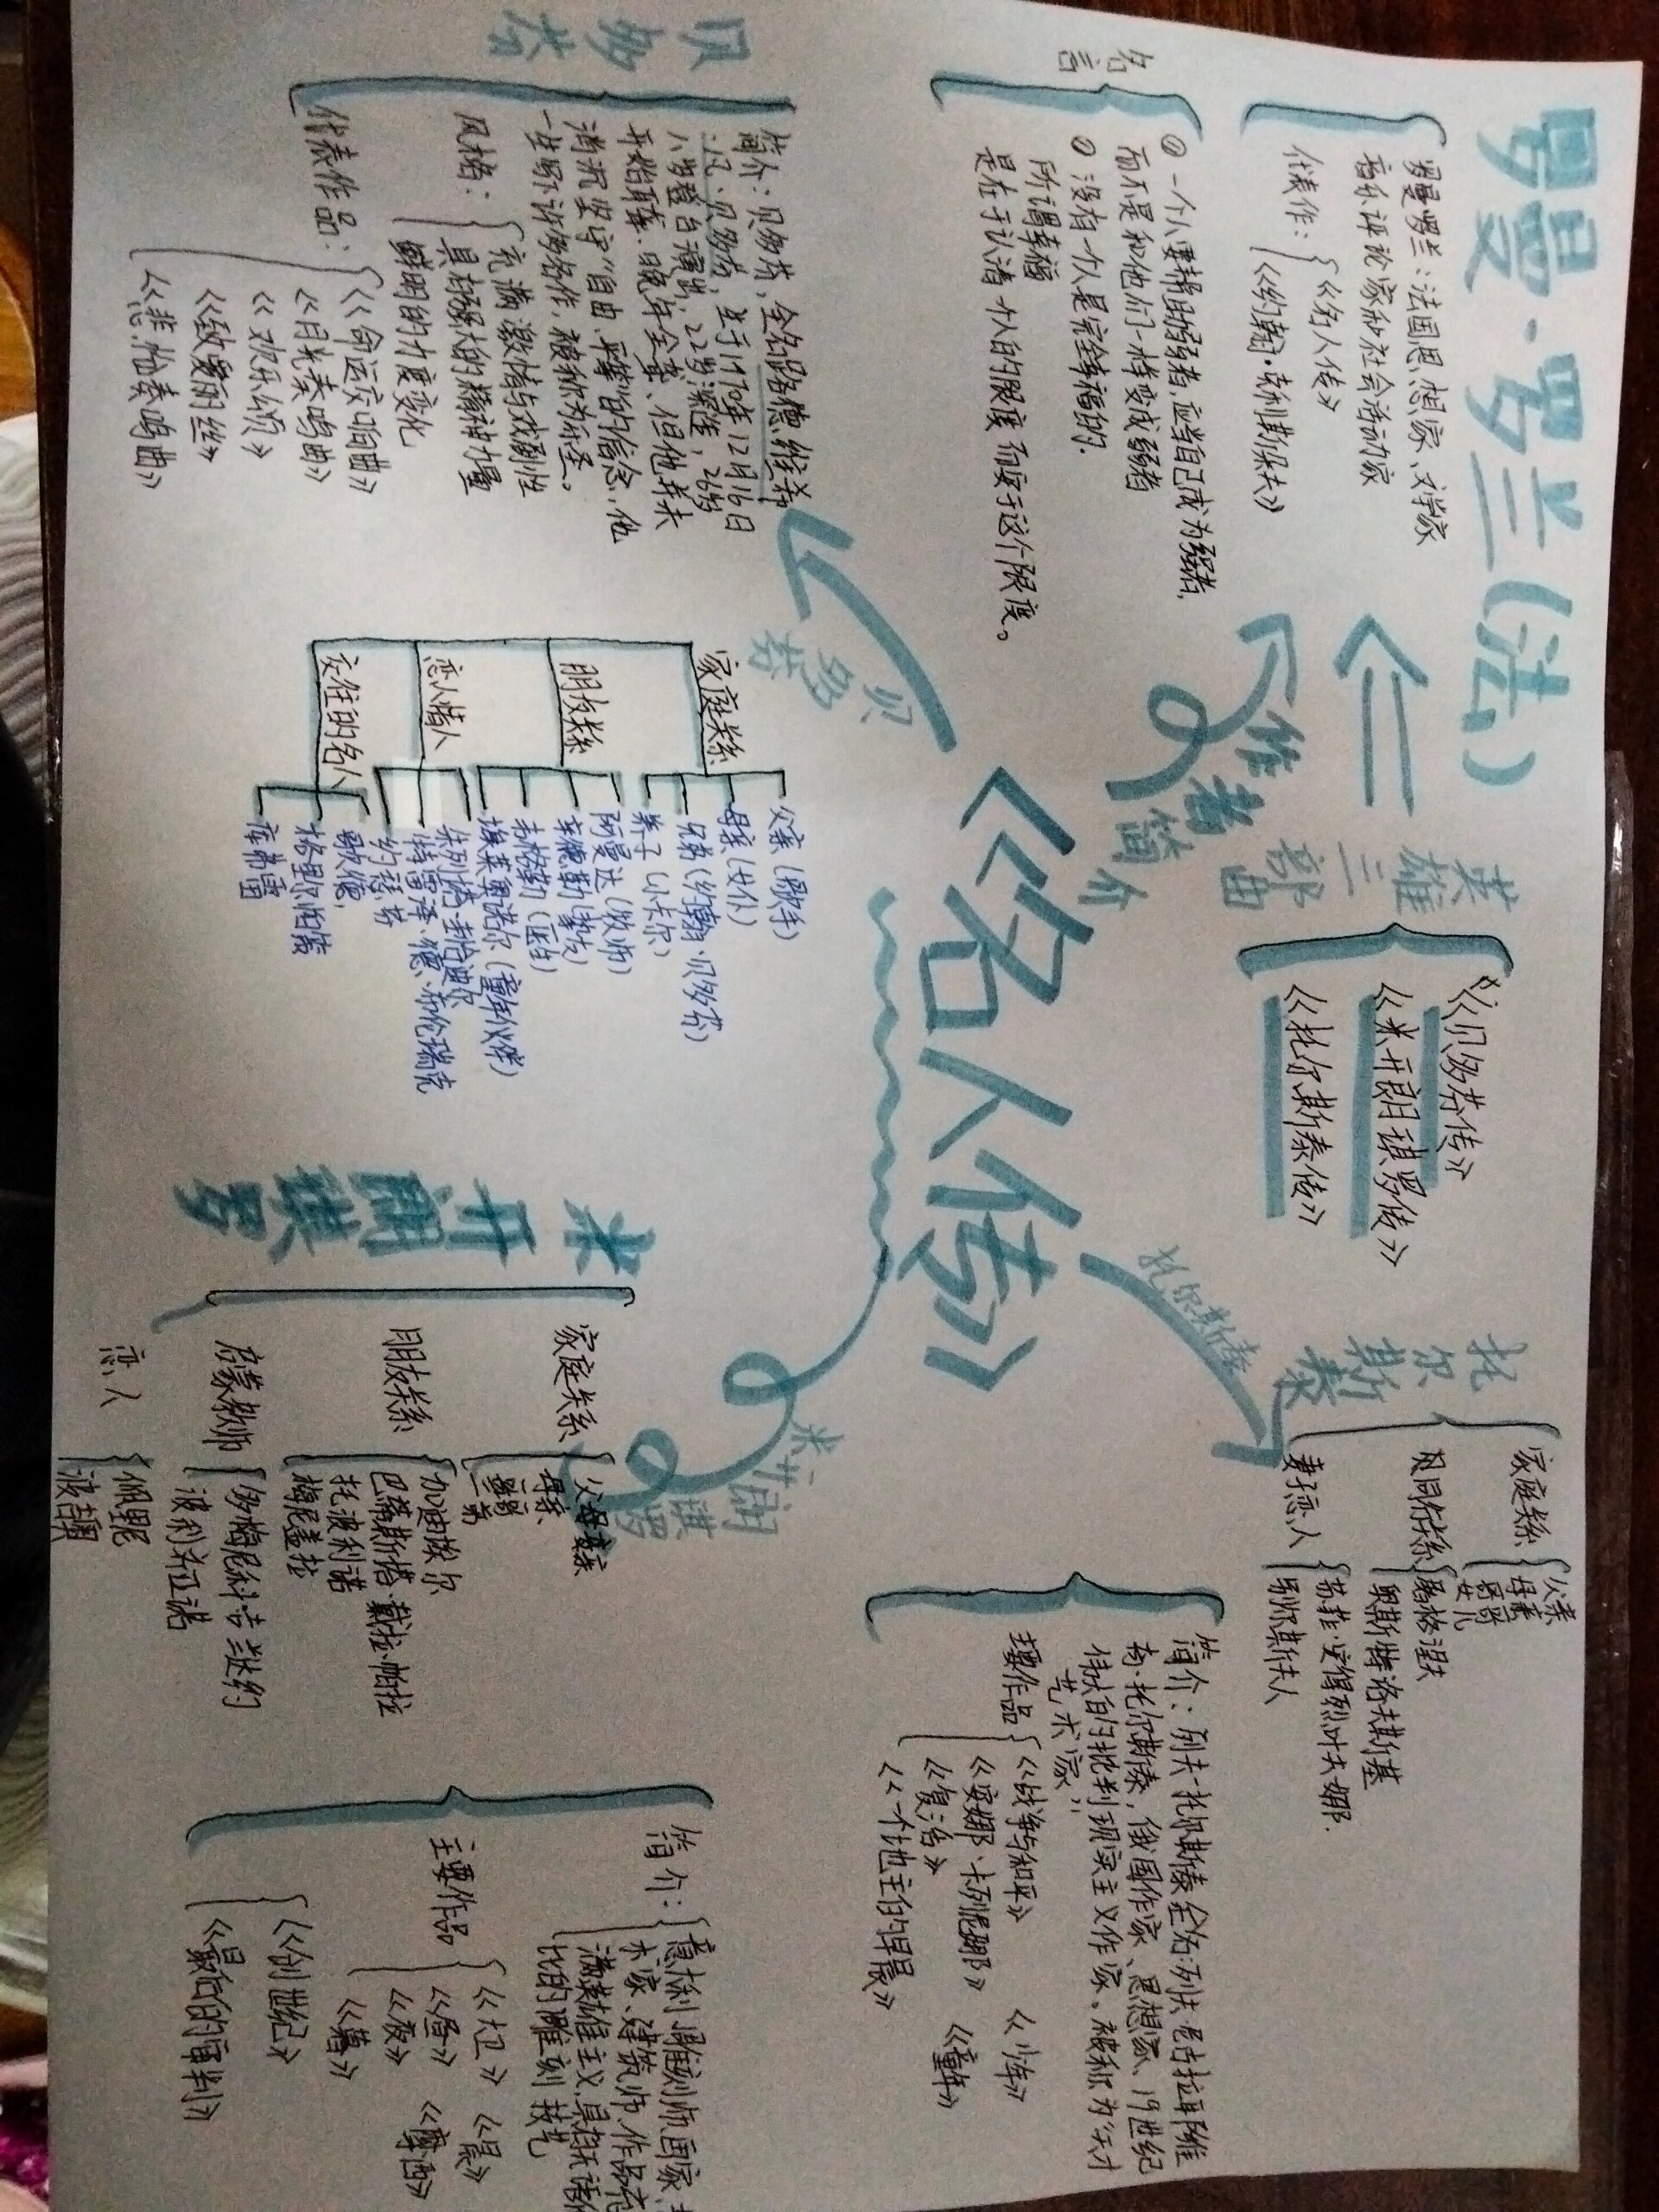 罗曼·罗兰(法)
罗曼罗兰：法国思想家、文学家
音乐评论家和社会活动家
代表作：
《名人传》
《约翰·克利斯朵夫》
名言
① 一个人要帮助弱者,应当自己成为强者,
而不是和他们一样变成弱者
② 没有一个人是完全幸福的.
所谓幸福
是在于认清一个人的限度而安于这个限度。
作者简介
英雄三部曲
《贝多芬传》
《米开朗琪罗传》
《托尔斯泰传》
《名人传》
贝多芬
托尔斯泰
米开朗琪罗
贝多芬
简介：贝多芬,全名路德维希
·凡·贝多芬,生于1770年12月16日
八岁登台演出,22岁深造,26岁
开始耳聋.晚年全聋、但他并未
消沉坚守"自由、平等"的信念,他
一生写下许多名作,被称为乐圣。
风格：
充满激情与戏剧性
具有强大的精神力量
鲜明的力度变化
代表作品：
《命运交响曲》
《月光奏鸣曲》
《欢乐颂》
《致爱丽丝》
《悲怆奏鸣曲》
家庭关系
父亲(歌手)
母亲(女仆)
兄弟(约翰·贝多芬)
养子(小卡尔)
朋友关系
阿曼达(牧师)
韦格勒(医生)
埃莱奥诺尔(童年伙伴)
恋人情人
特雷泽·德·布伦瑞克
交往的名人
歌德
托尔斯泰
家庭关系
父亲
母亲
女儿
屠格涅夫
奥斯特洛夫斯基
妻子恋人
苏菲·安得烈叶夫娜.
简介：列夫·托尔斯泰全名:列夫·尼古拉耶维
奇·托尔斯泰,俄国作家、思想家、19世纪
伟大的批判现实主义作家。被称为"天才
艺术家";
主要作品
《战争与和平》
《安娜·卡列尼娜》
《复活》
《一个地主的早晨》
《少年》
《童年》
米开朗琪罗
家庭关系
朋友关系
加迪埃尔
托波利诺
梅尼盖拉
启蒙教师
多梅尼科·吉兰达约
波利齐亚诺
恋人
佩里尼
波吉奥
简介：
意大利雕刻师画家,
术家、建筑师、作品充
满英雄主义,具有无语伦
比的雕刻技艺
主要作品
《大卫》
《昼》
《夜》
《暮》
《晨》
《摩西》
《创世纪》
《最后的审判》